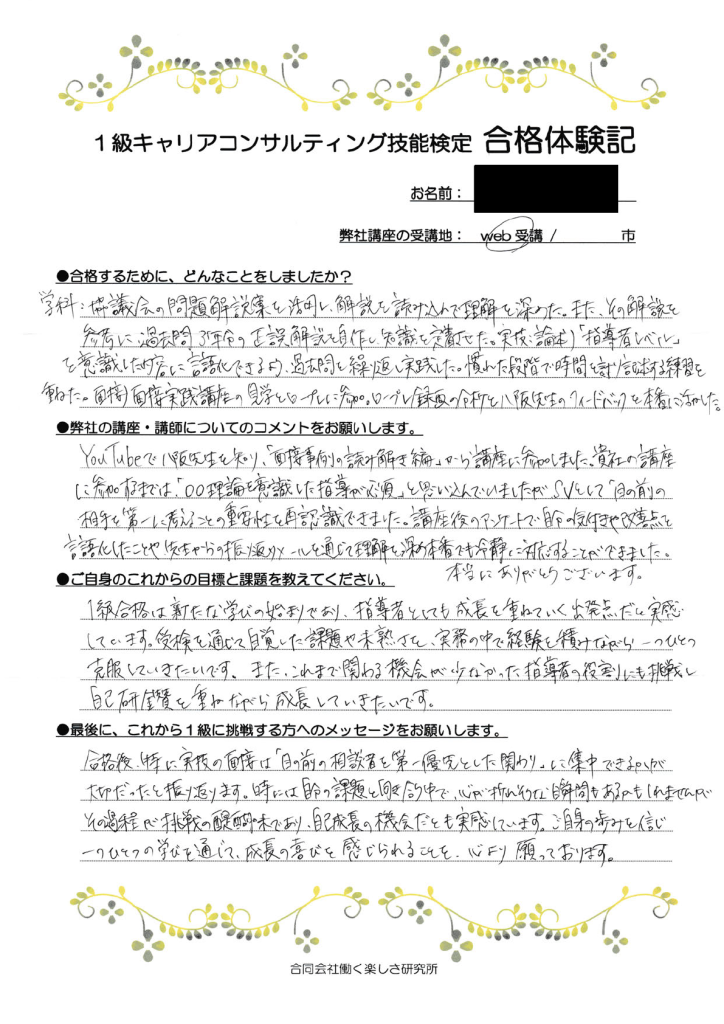 1級キャリアコンサルティング技能検定 合格体験記
お名前：
弊社講座の受講地： web受講 / 市
●合格するために、どんなことをしましたか？
学科：協議会の問題解説集を活用し、解説を読み込んで理解を深めた。また、その解説を
参考に、過去問3年分の正誤解説を自作し知識を定着させた。実技(論述)「指導者レベル」
を意識した内容に言語化できるよう、過去問を繰り返し実践した。慣れた段階で時間を計り記述する練習を
重ねた。(面接)面接実践講座の見学とロープレに参加。ロープレ録画の分析と八阪先生のフィードバックを本番に活かした。
●弊社の講座・講師についてのコメントをお願いします。
YouTubeで八阪先生を知り、「面接事例の読み解き編」から講座に参加しました。貴社の講座
に参加するまでは、「〇〇理論を意識した指導が必須」と思い込んでいましたが、SVとして「目の前の
相手を第一に考えることの重要性を再認識できました。講座後のアンケートで自分の気付きや改善点を
言語化したことや先生からの振り返りメールを通じて理解を深め本番でも冷静に対応することができました。
本当にありがとうございます。
●ご自身のこれからの目標と課題を教えてください。
1級合格は新たな学びの始まりであり、指導者としても成長を重ねていく出発点だと実感
しています。受検を通じて自覚した課題や未熟さを、実務の中で経験を積みながら一つひとつ
克服していきたいです。また、これまで関わる機会が少なかった指導者の役割にも挑戦し
自己研鑽を重ねながら成長していきたいです。
●最後に、これから1級に挑戦する方へのメッセージをお願いします。
合格後、特に実技の面接は「目の前の相談者を第一優先とした関わり」に集中できるかが
大切だったと振り返ります。時には自分の課題と向き合う中で、心が折れそうな瞬間もあるかもしれませんが
その過程が挑戦の醍醐味であり、自己成長の機会だとも実感しています。ご自身の歩みを信じ
一つひとつの学びを通じて、成長の喜びを感じられることを、心より願っております。
合同会社働く楽しさ研究所